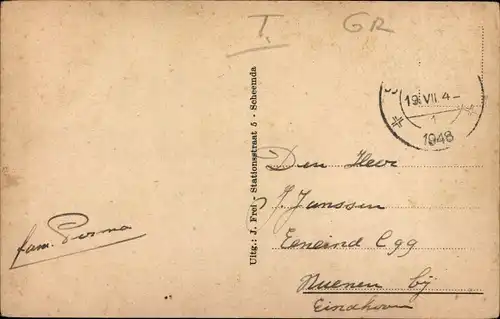 T. GR
19 VII 4-
1
1948
Uitg.: J. Frei - Stationsstraat 5 - Scheemda
Den Heer
J. Janssen
Eeneind C 99
Nuenen bij
Eindhoven
fam.